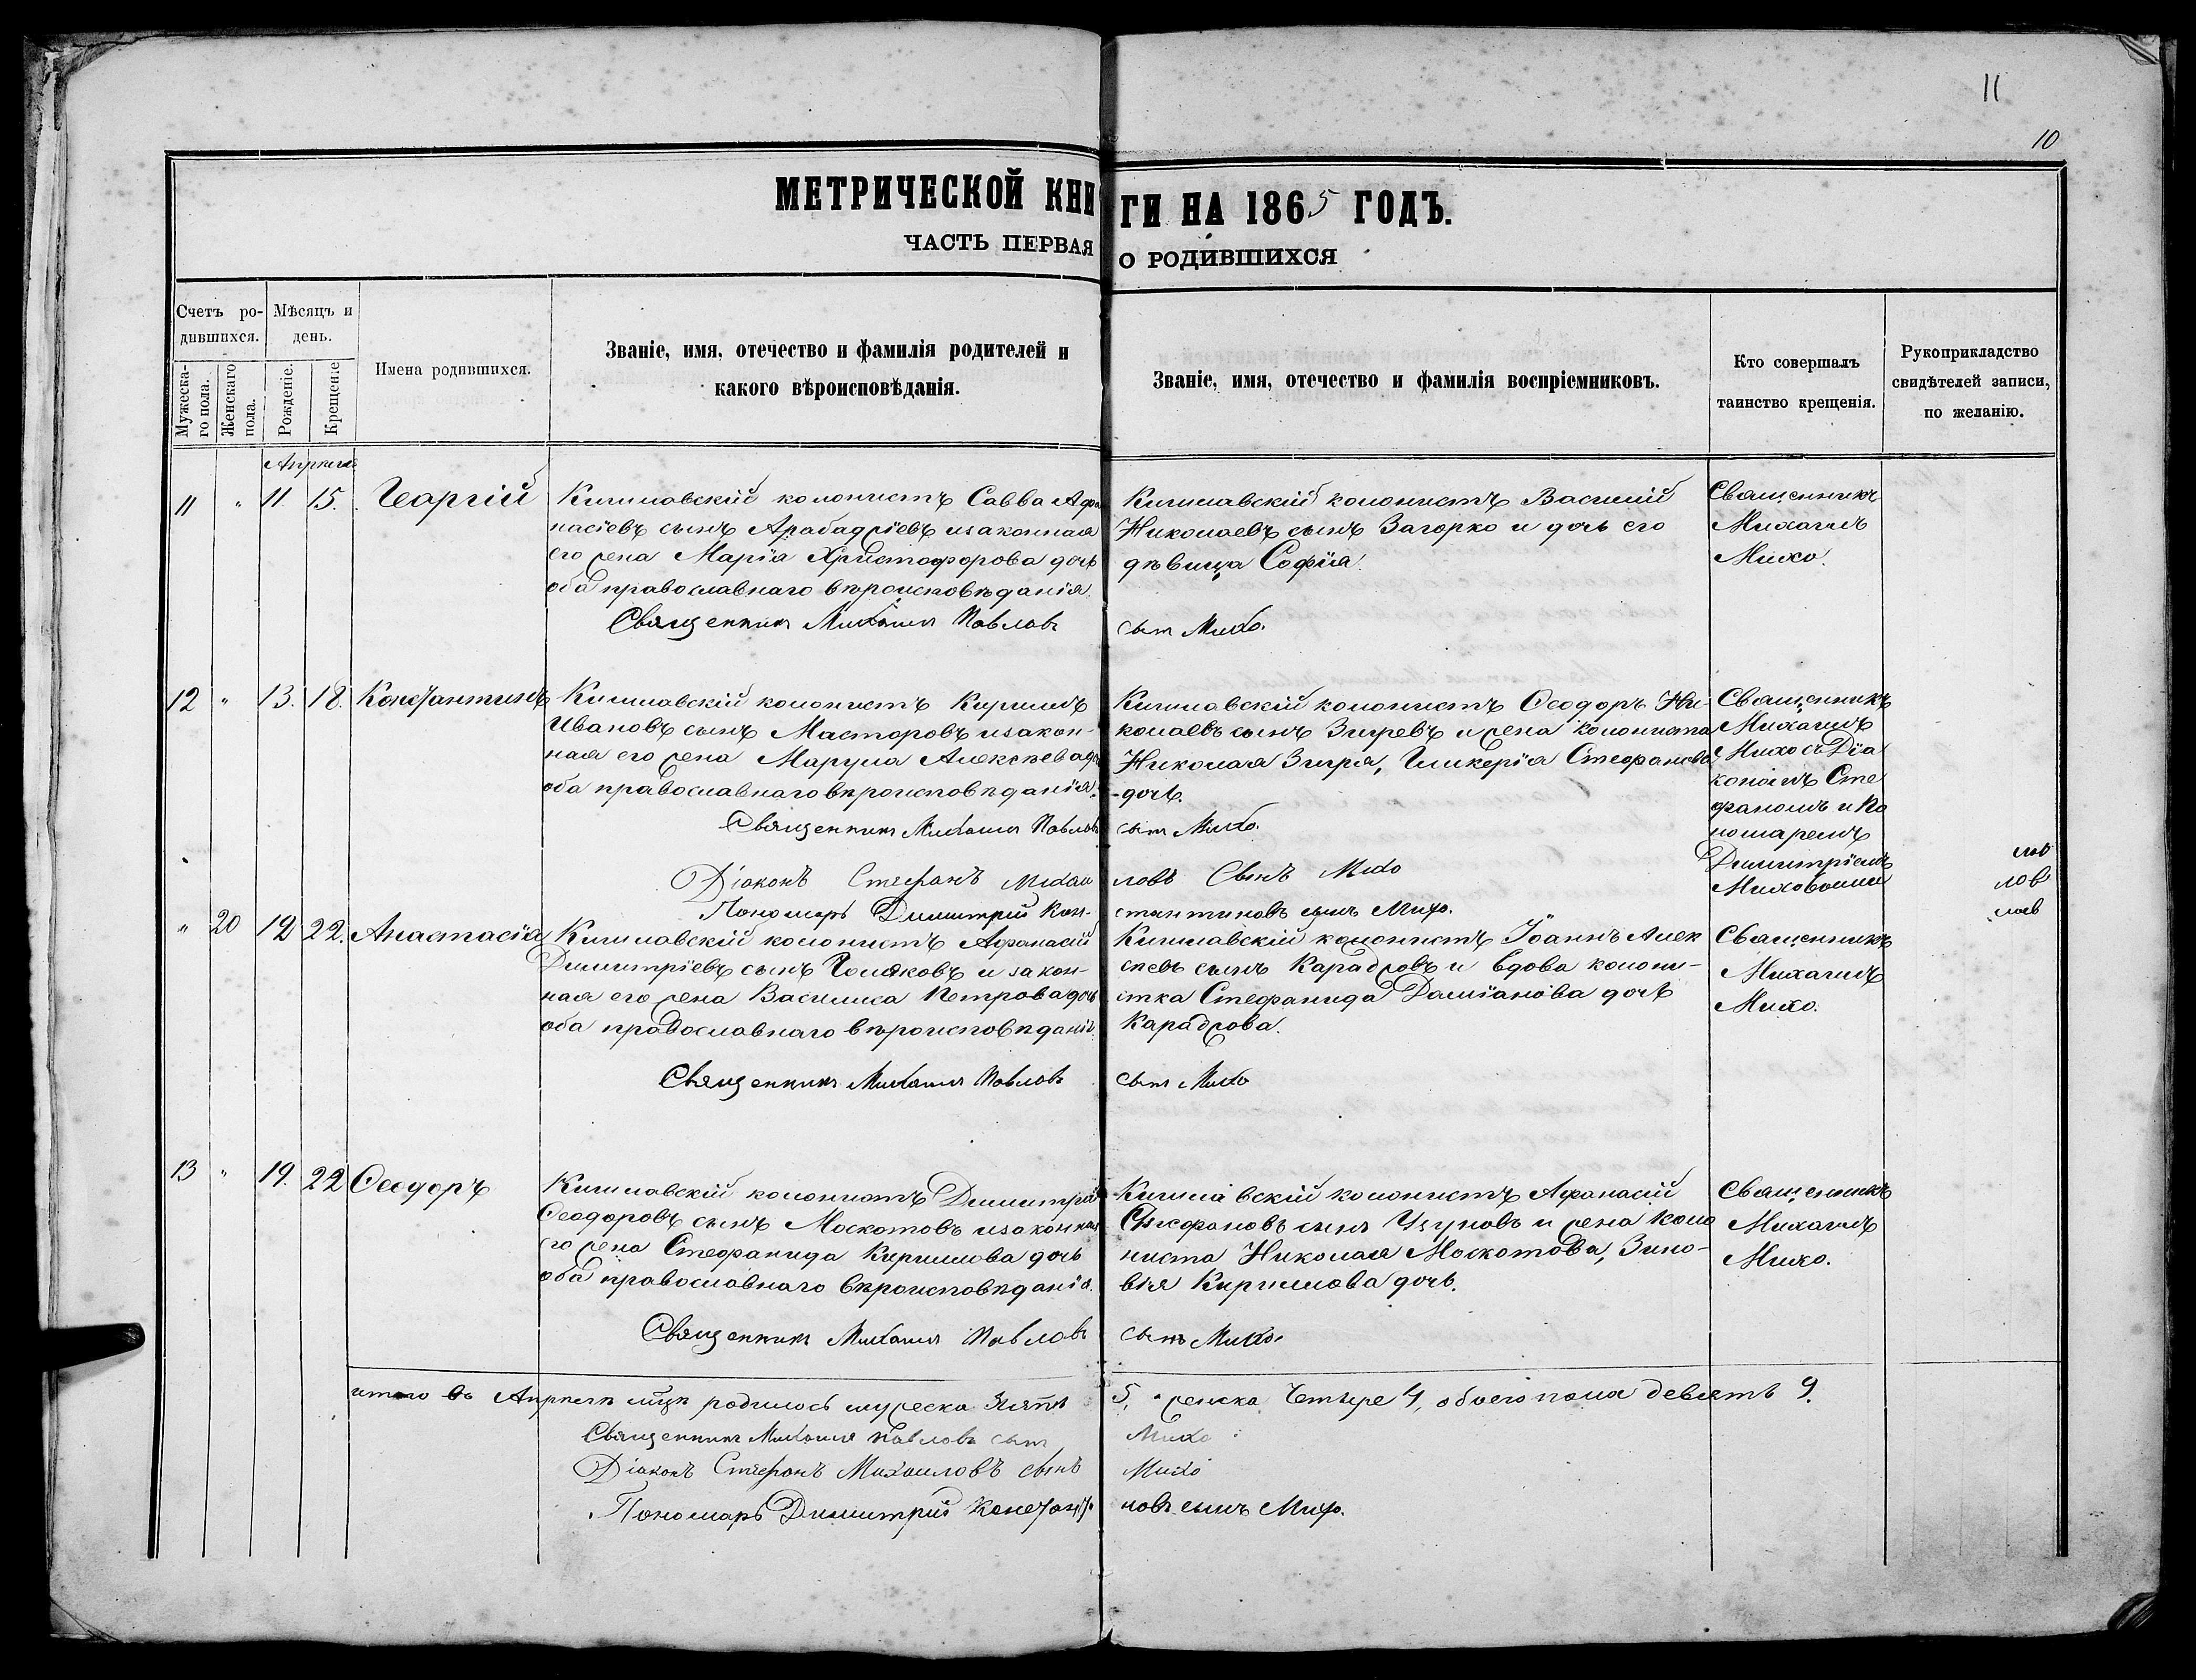 11
10
МЕТРИЧЕСКОЙ КНИГИ НА 1865 ГОДЪ.
ЧАСТЬ ПЕРВАЯ О РОДИВШИХСЯ
Счетъ ро-
дившихся.
Мужеска-
го пола.
Женскаго
пола.
Мѣсяцъ и
день.
Рожденіе.
Крещеніе
Имена родившихся.
Званіе, имя, отечество и фамилія родителей и
какого вѣроисповѣданія.
Званіе, имя, отечество и фамилія воспріемниковъ.
Кто совершалъ
таинство крещенія.
Рукоприкладство
свидѣтелей записи,
по желанію.
Апрель
11 " 11. 15. Георгій
Кишлавскій колонистъ Савва Афа
насіевъ сынъ Арабаджіевъ и законная
его жена Марія Христофорова дочь
оба православнаго вѣроисповѣданія.
Кишлавскій колонистъ Василій
Николаевъ сынъ Загорко и дочь его
дѣвица Софія.
Священникъ
Михаилъ
Михо.
Священникъ Михаилъ Павловъ сынъ Михо.
12 " 13. 18. Константинъ
Кишлавскій колонистъ Кириллъ
Ивановъ сынъ Масторовъ и закон-
ная его жена Марула Алексѣева до
оба православнаго вѣроисповѣданія.
Кишлавскій колонистъ Ѳеодоръ Ни-
колаевъ сынъ Згиревъ и жена колониста
Николая Згиря, Гликерія Стефанова
-дочь.
Священникъ
Михаилъ
Михо съ Діа
кономъ Сте
фаномъ и По
номаремъ
Димитріемъ
Миховыми
Священникъ Михаилъ Павловъ сынъ Михо.
Діаконъ Стефанъ Михаи ловъ Сынъ Михо
Пономарь Димитрій Кон- стантиновъ сынъ Михо.
лов
" 20 19 22. Анастасія
Кишлавскій колонистъ Афанасій
Димитріевъ сынъ Чолаковъ и закон-
ная его жена Василиса Петрова дочь
оба православнаго вѣроисповѣданія
Кишлавскій колонистъ Іоаннъ Алек
сѣевъ сынъ Караджовъ и вдова колони-
стка Стефанида Даміанова дочь
Караджова.
Священникъ
Михаилъ
Михо.
Священникъ Михаилъ Павловъ сынъ Михо
13 " 19. 22 Ѳеодоръ
Кишлавскій колонистъ Димитрій
Ѳеодоровъ сынъ Москотовъ и законная
его жена Стефанида Кириллова дочь
оба православнаго вѣроисповѣданія.
Кишлавскій колонистъ Афанасій
Стефановъ сынъ Узуновъ и жена коло
ниста Николая Москотова, Зино-
вія Кириллова дочь.
Священникъ
Михаилъ
Михо.
Священникъ Михаилъ Павловъ сынъ Михо.
итого въ Апрѣлѣ мцѣ родилось мужеска пять 5, женска Четыре 4, обоего пола девять 9.
Священникъ Михаилъ Павловъ сынъ Михо
Діаконъ Стефанъ Михаиловъ сынъ Михо
Пономарь Димитрій Константи новъ сынъ Михо.